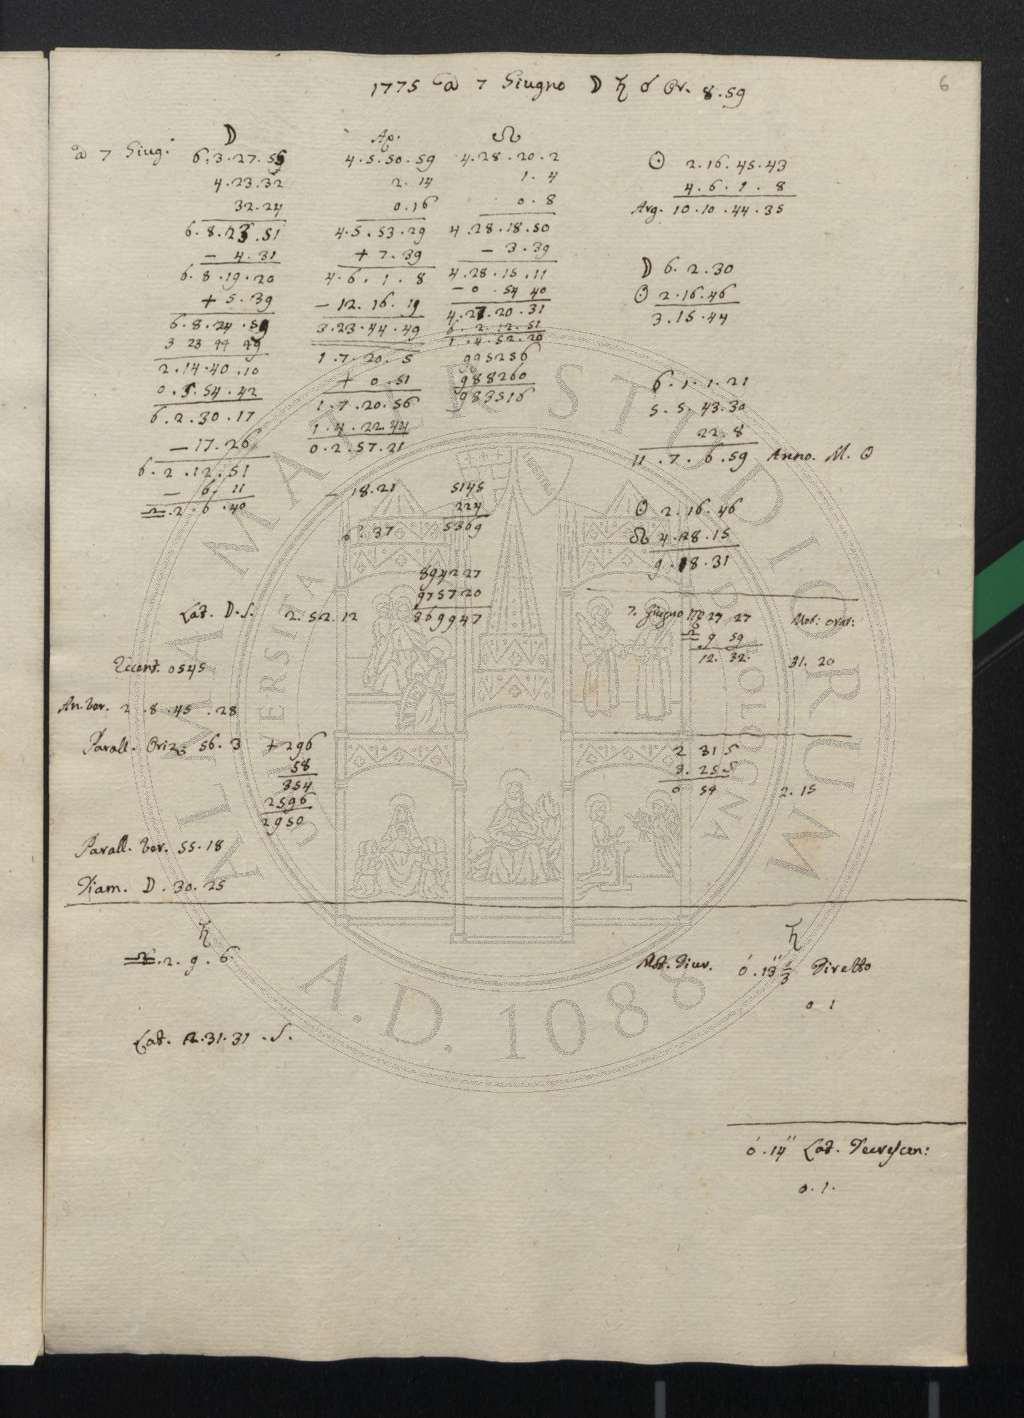 6
1775 a 7 Giugno ☽ ♄ ☌ Or. 8.59
☽ Ap. ☊
a 7 Giug. 6.3.27.55 4.5.50.59 4.28.20.2 ☉ 2.16.45.43
4.23.32 2.14 1.4 4.6.1.8
32.24 0.16 0.8 Arg. 10.10.44.35
6.8.23.51 4.5.53.29 4.28.18.50
– 4.31 + 7.39 – 3.39
6.8.19.20 4.6.1.8 4.28.15.11 ☽ 6.2.30
+ 5.39 – 12.16.19 – 0.54 40 ☉ 2.16.46
6.8.24.59 3.23.44.49 4.27.20.31 3.15.44
3 23 44 49 6.2.12.51
2.14.40.10 1.7.20.5 1.4.52.20
0.5.54.42 + 0.51 995256 6.1.1.21
6.2.30.17 1.7.20.56 988260 5.5.43.30
– 17.26 1.4.22.44 983516 22.8
6.2.12.51 0.2.57.21 11.7.6.59 Anno. M. ☉
– 6.11 – 18.21 5145
♎.2.6.40 224 ☉ 2.16.46
6.37 5369 ☊ 4.28.15
9.18.31
894227
975720
Lat. ☽.S. 2.52.12 869947
7. Giugno 27 27 Mot: orar:
9 59
12. 32. 31. 20
Eccent. 0545
An. ver. 2.8.45.28
Parall. Oriz. 56.3 + 296 2 31 S
58 3. 25 S
354 0 54 2.15
2596
2950
Parall. ver. 55.18
Diam. ☽. 30.25
♄ ♄
♎.2.9.6 Mot. Diur. 0.13" 1/3 Diretto
0 1
Lat. 2.31.31.S.
0.14" Lat. Decrescen:
0.1.
ALMA MATER STUDIORUM
UNIVERSITÀ DI BOLOGNA
A.D. 1088